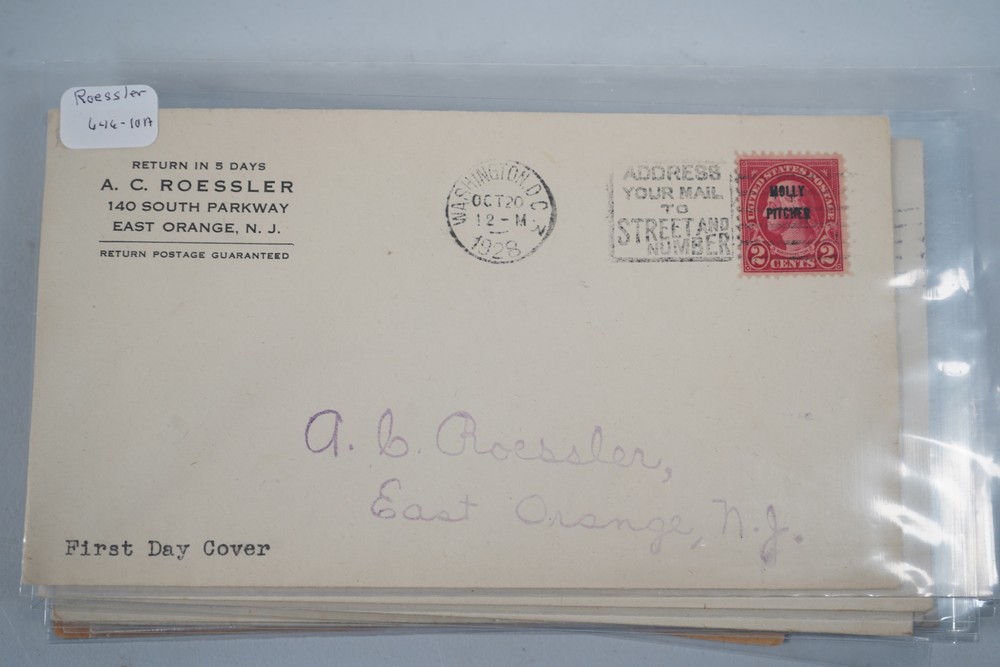 Roessler
646-10A
RETURN IN 5 DAYS
A. C. ROESSLER
140 SOUTH PARKWAY
EAST ORANGE, N. J.
RETURN POSTAGE GUARANTEED
WASHINGTON, D.C.
OCT 20
12 - M
1928
ADDRESS
YOUR MAIL
TO
STREET AND
NUMBER
UNITED STATES POSTAGE
MOLLY
PITCHER
2 CENTS 2
A. C. Roessler,
East Orange, N.J.
First Day Cover